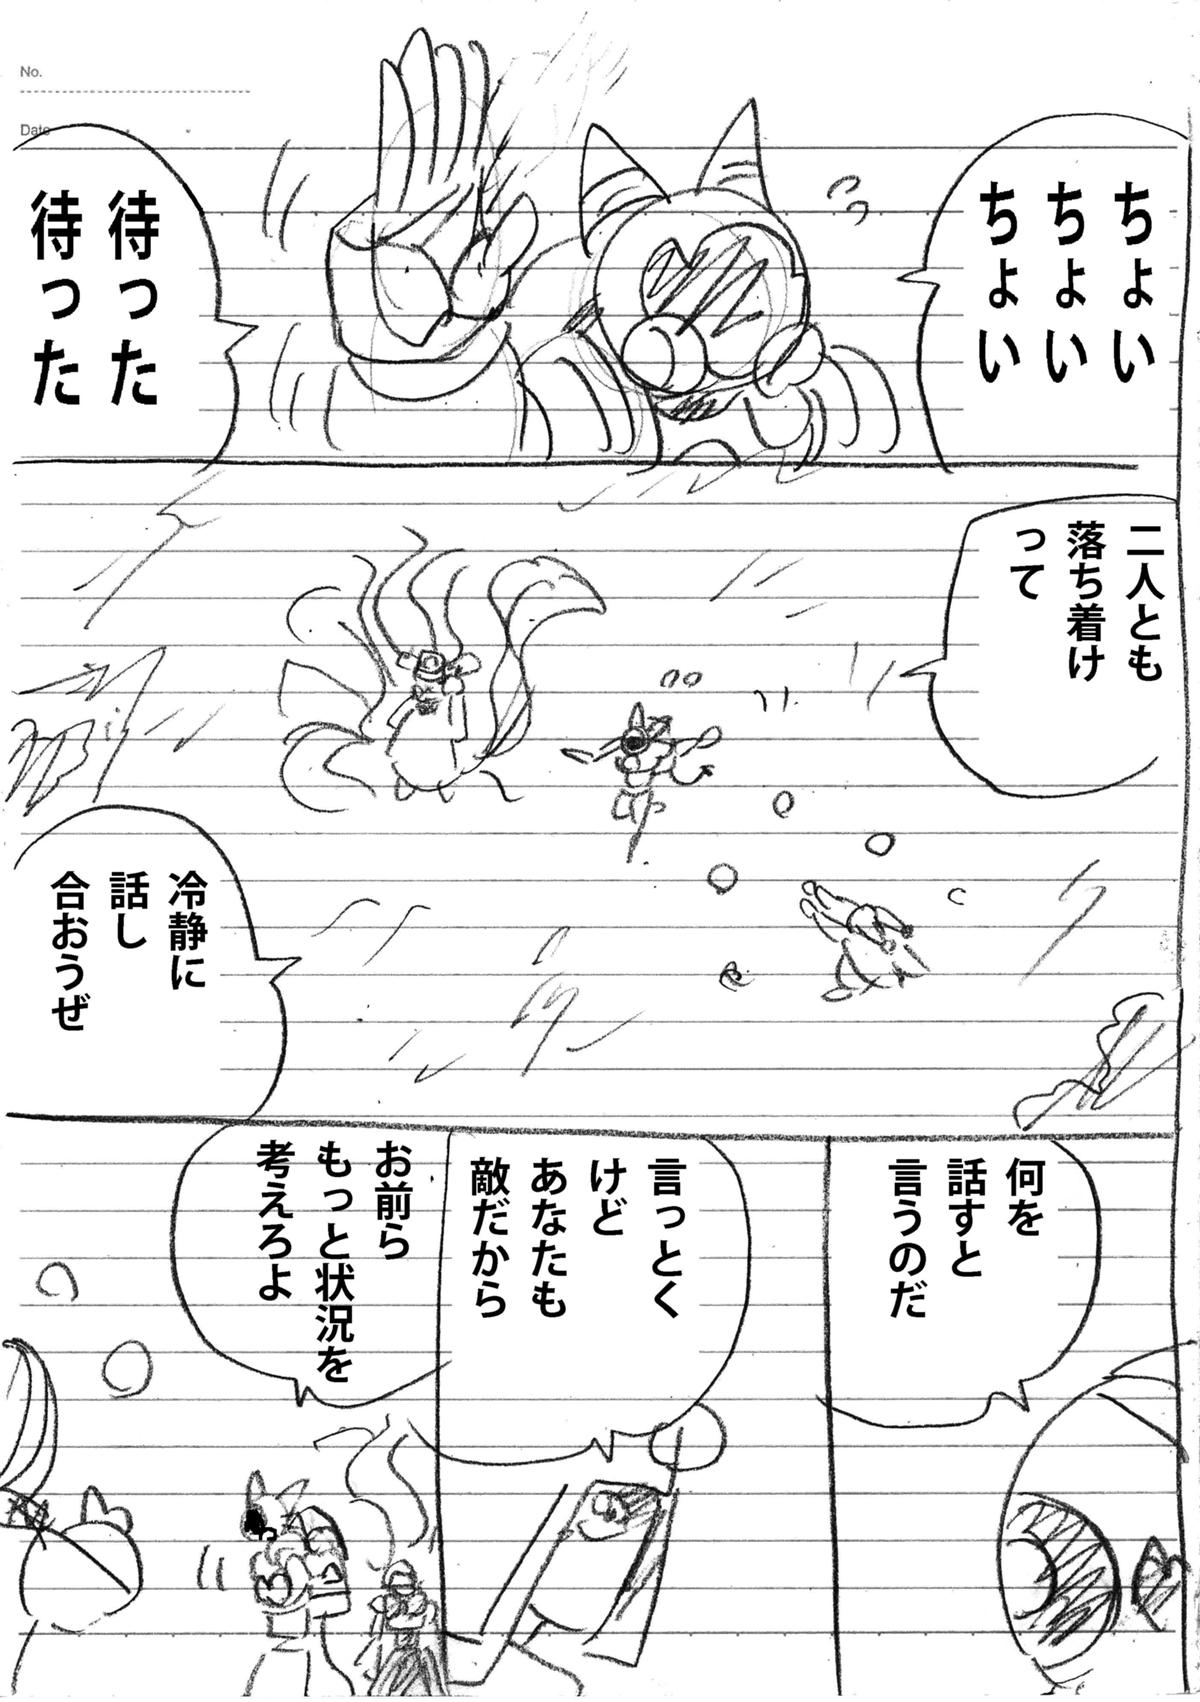 No.
Date
ちょい
ちょい
ちょい
待った
待った
二人とも
落ち着け
って
冷静に
話し
合おうぜ
何を
話すと
言うのだ
言っとく
けど
あなたも
敵だから
お前ら
もっと状況を
考えろよ